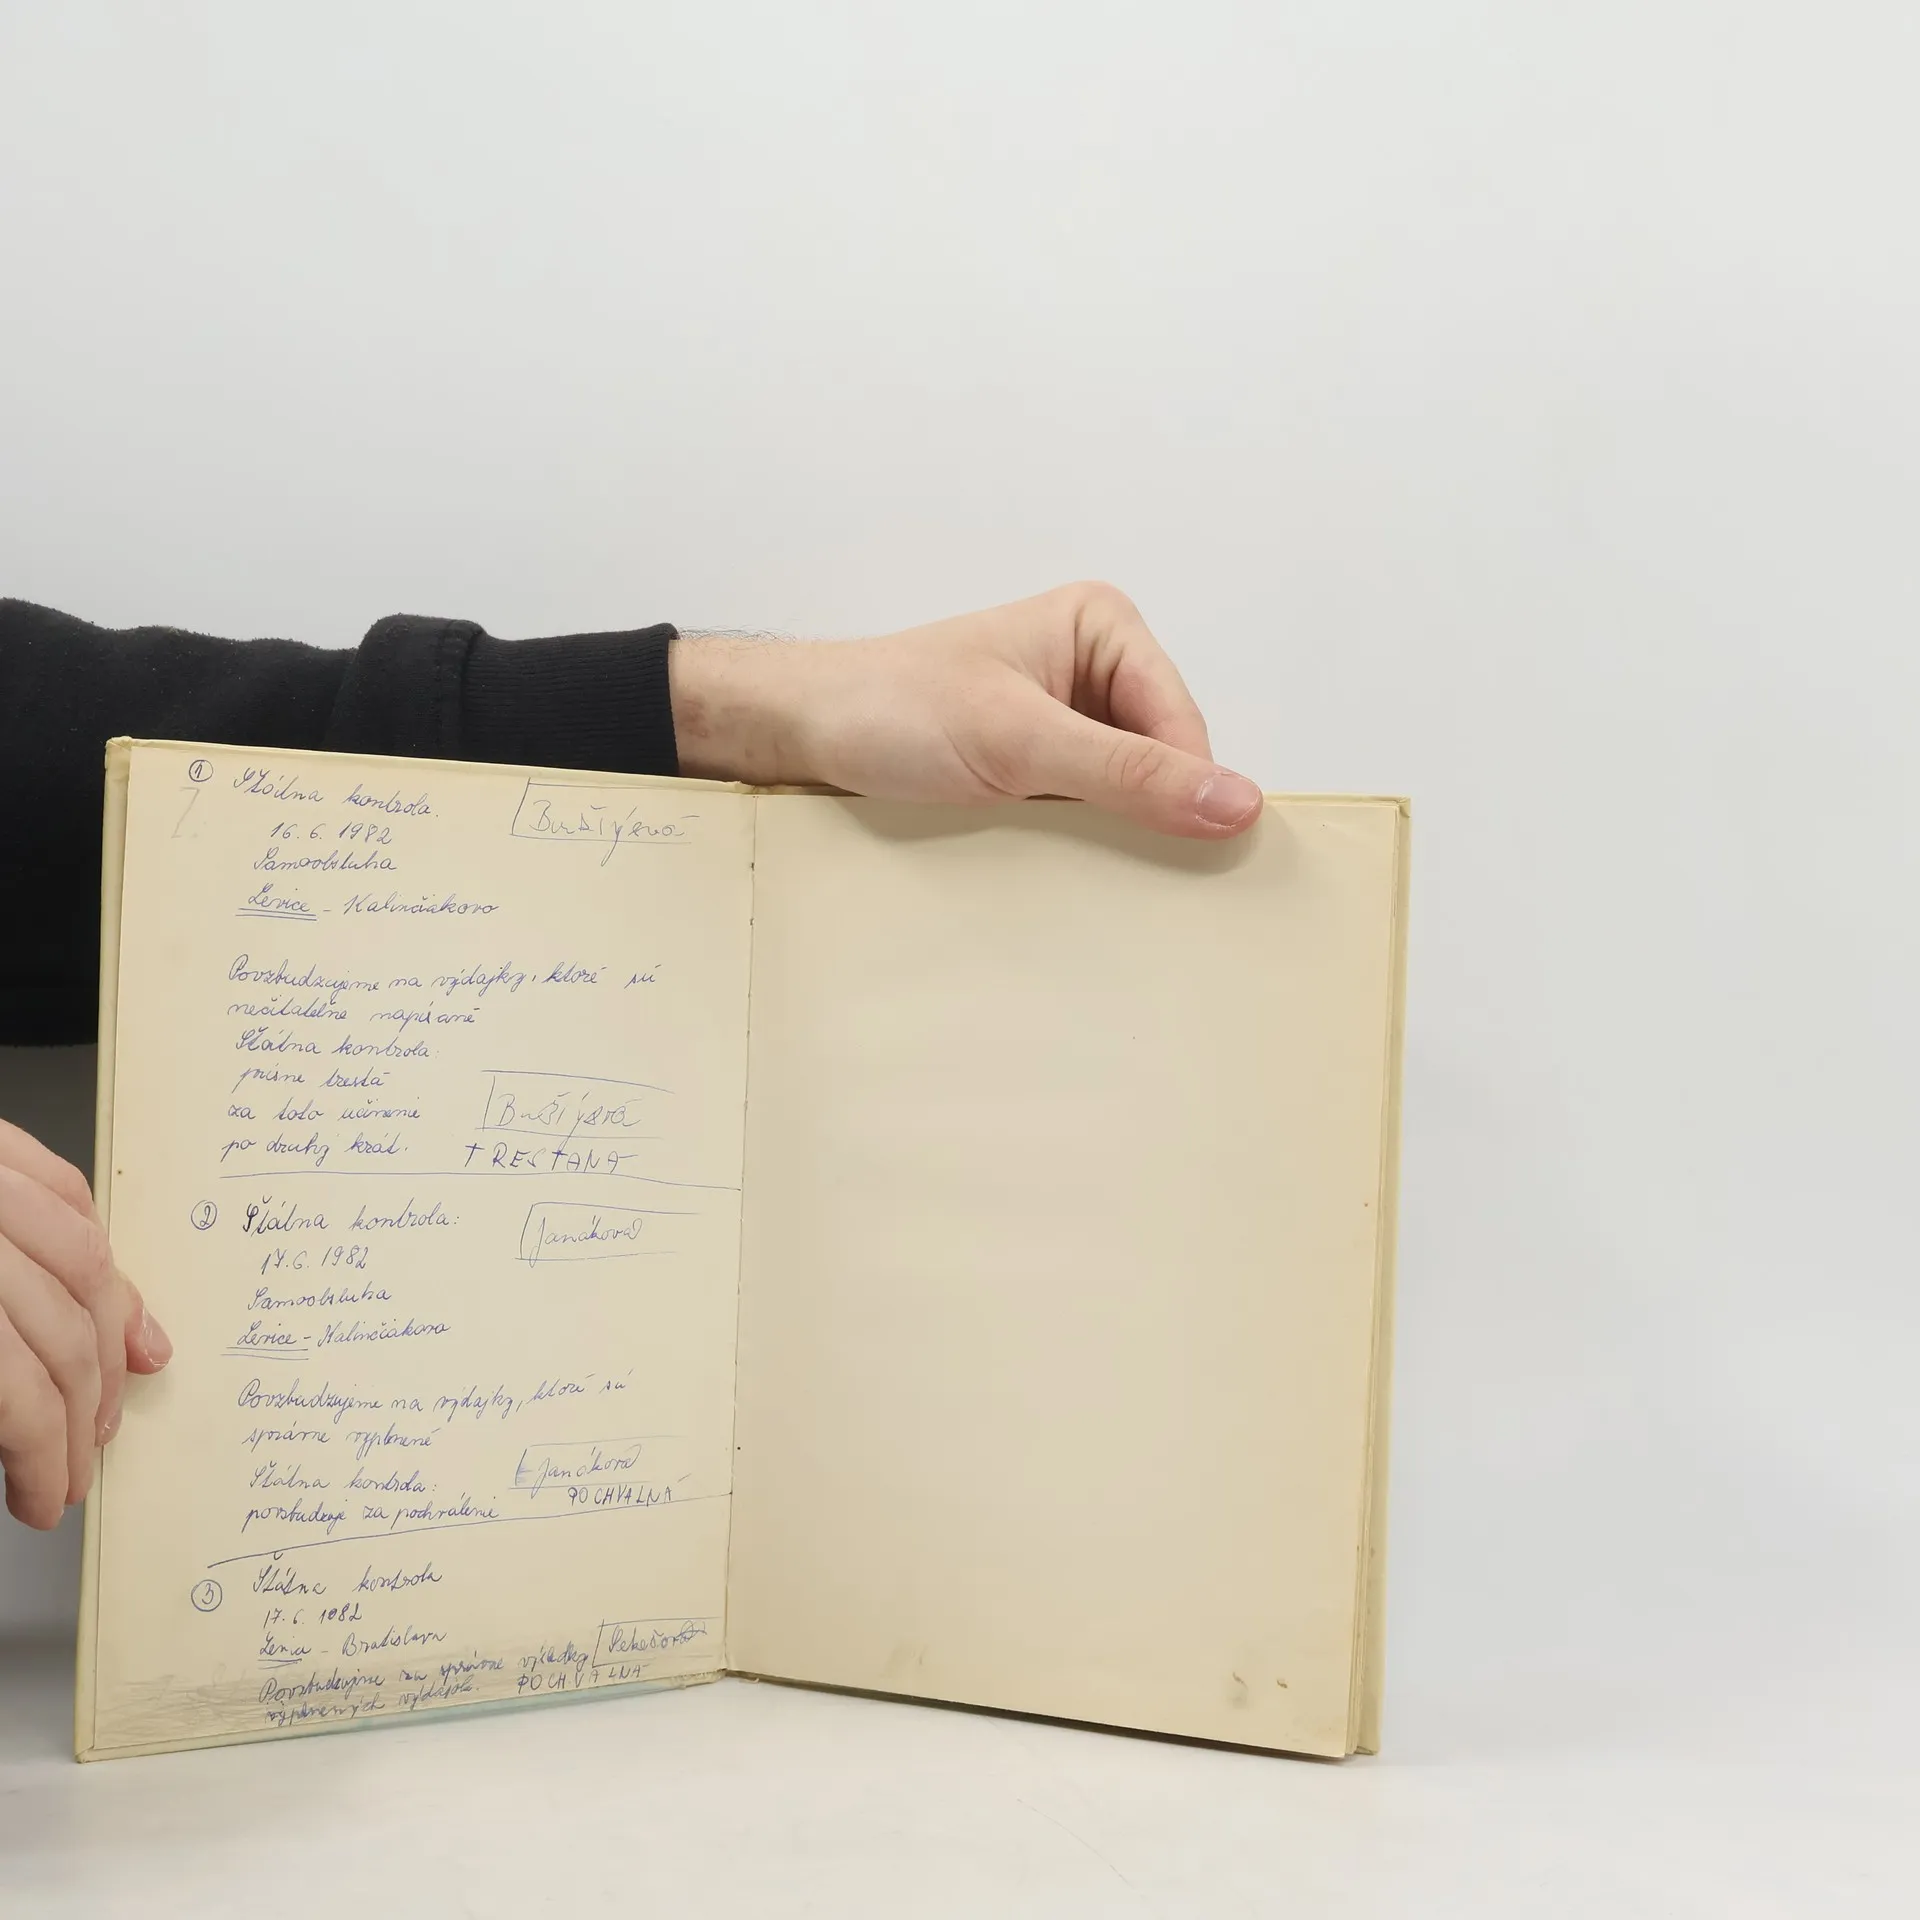 1 Štátna kontrola.
Buštýová
16. 6. 1982
Samoobsluha
Levice - Kalinčiakovo
Povzbudzujeme na výdajky, ktoré sú
nečitatelne napísané
Štátna kontrola:
prísne trestá
za toto učinenie
po druhý krát.
TRESTANÁ
2 Štátna kontrola:
Janáková
17. 6. 1982
Samoobsluha
Levice - Kalinčiakovo
Povzbudzujeme na výdajky, ktoré sú
správne vyplnené
Štátna kontrola:
Janáková
povzbudzuje za pochválenie
POCHVALNÁ
3 Štátna kontrola
17. 6. 1982
Levice - Bratislava
Povzbudzujme za správne výsledky
vyplnených výdajok.
POCHVALNÁ